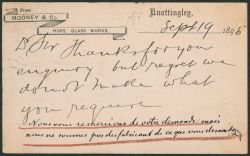 From
MOONEY & Co.
HOPE GLASS WORKS,
Knottingley,
Sept 19 1895
Dr Sir Thanks for your
enquiry but regret we
do not make what
you require
Nous vous remercions de votre demande mais
nous ne sommes pas des fabricant de ce que vous demandez